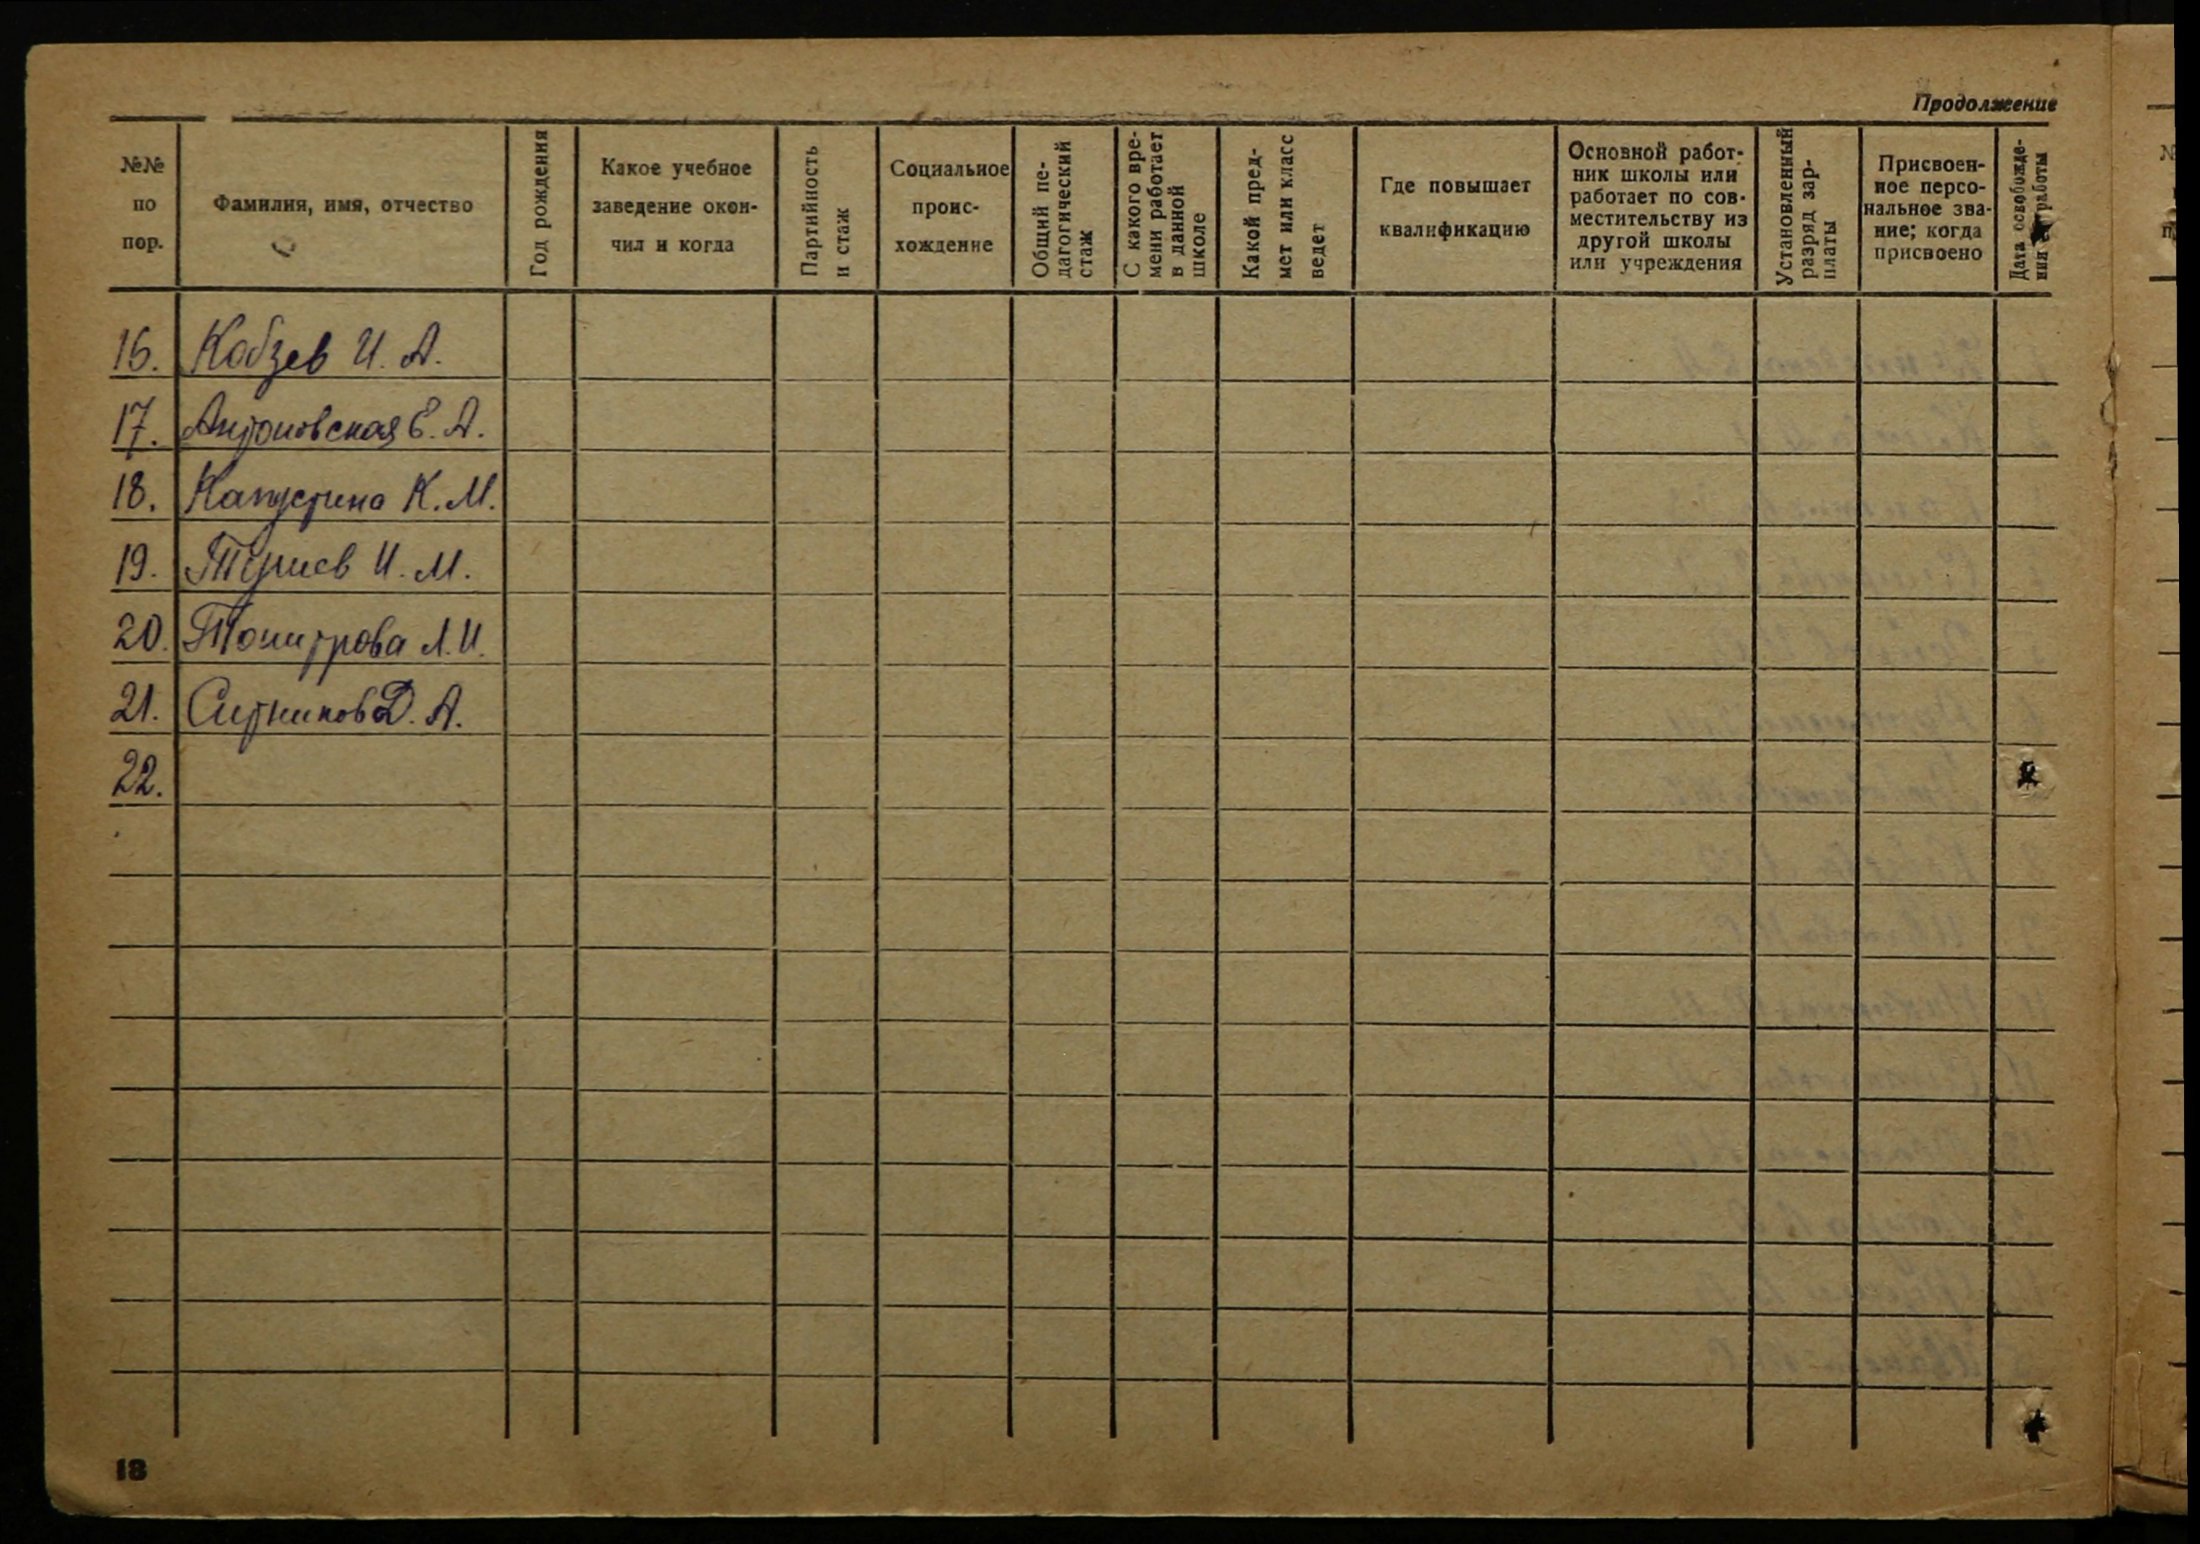 Продолжение
№№ по пор.
Фамилия, имя, отчество
Год рождения
Какое учебное заведение окончил и когда
Партийность и стаж
Социальное происхождение
Общий педагогический стаж
С какого времени работает в данной школе
Какой предмет или класс ведет
Где повышает квалификацию
Основной работник школы или работает по совместительству из другой школы или учреждения
Установленный разряд зарплаты
Присвоенное персональное звание; когда присвоено
Дата освобождения работы
16. Кобзев И. А.
17. Антоновская Е. А.
18. Капустина К. М.
19. И. М.
20. Л. И.
21. Ситников Д. А.
22.
18